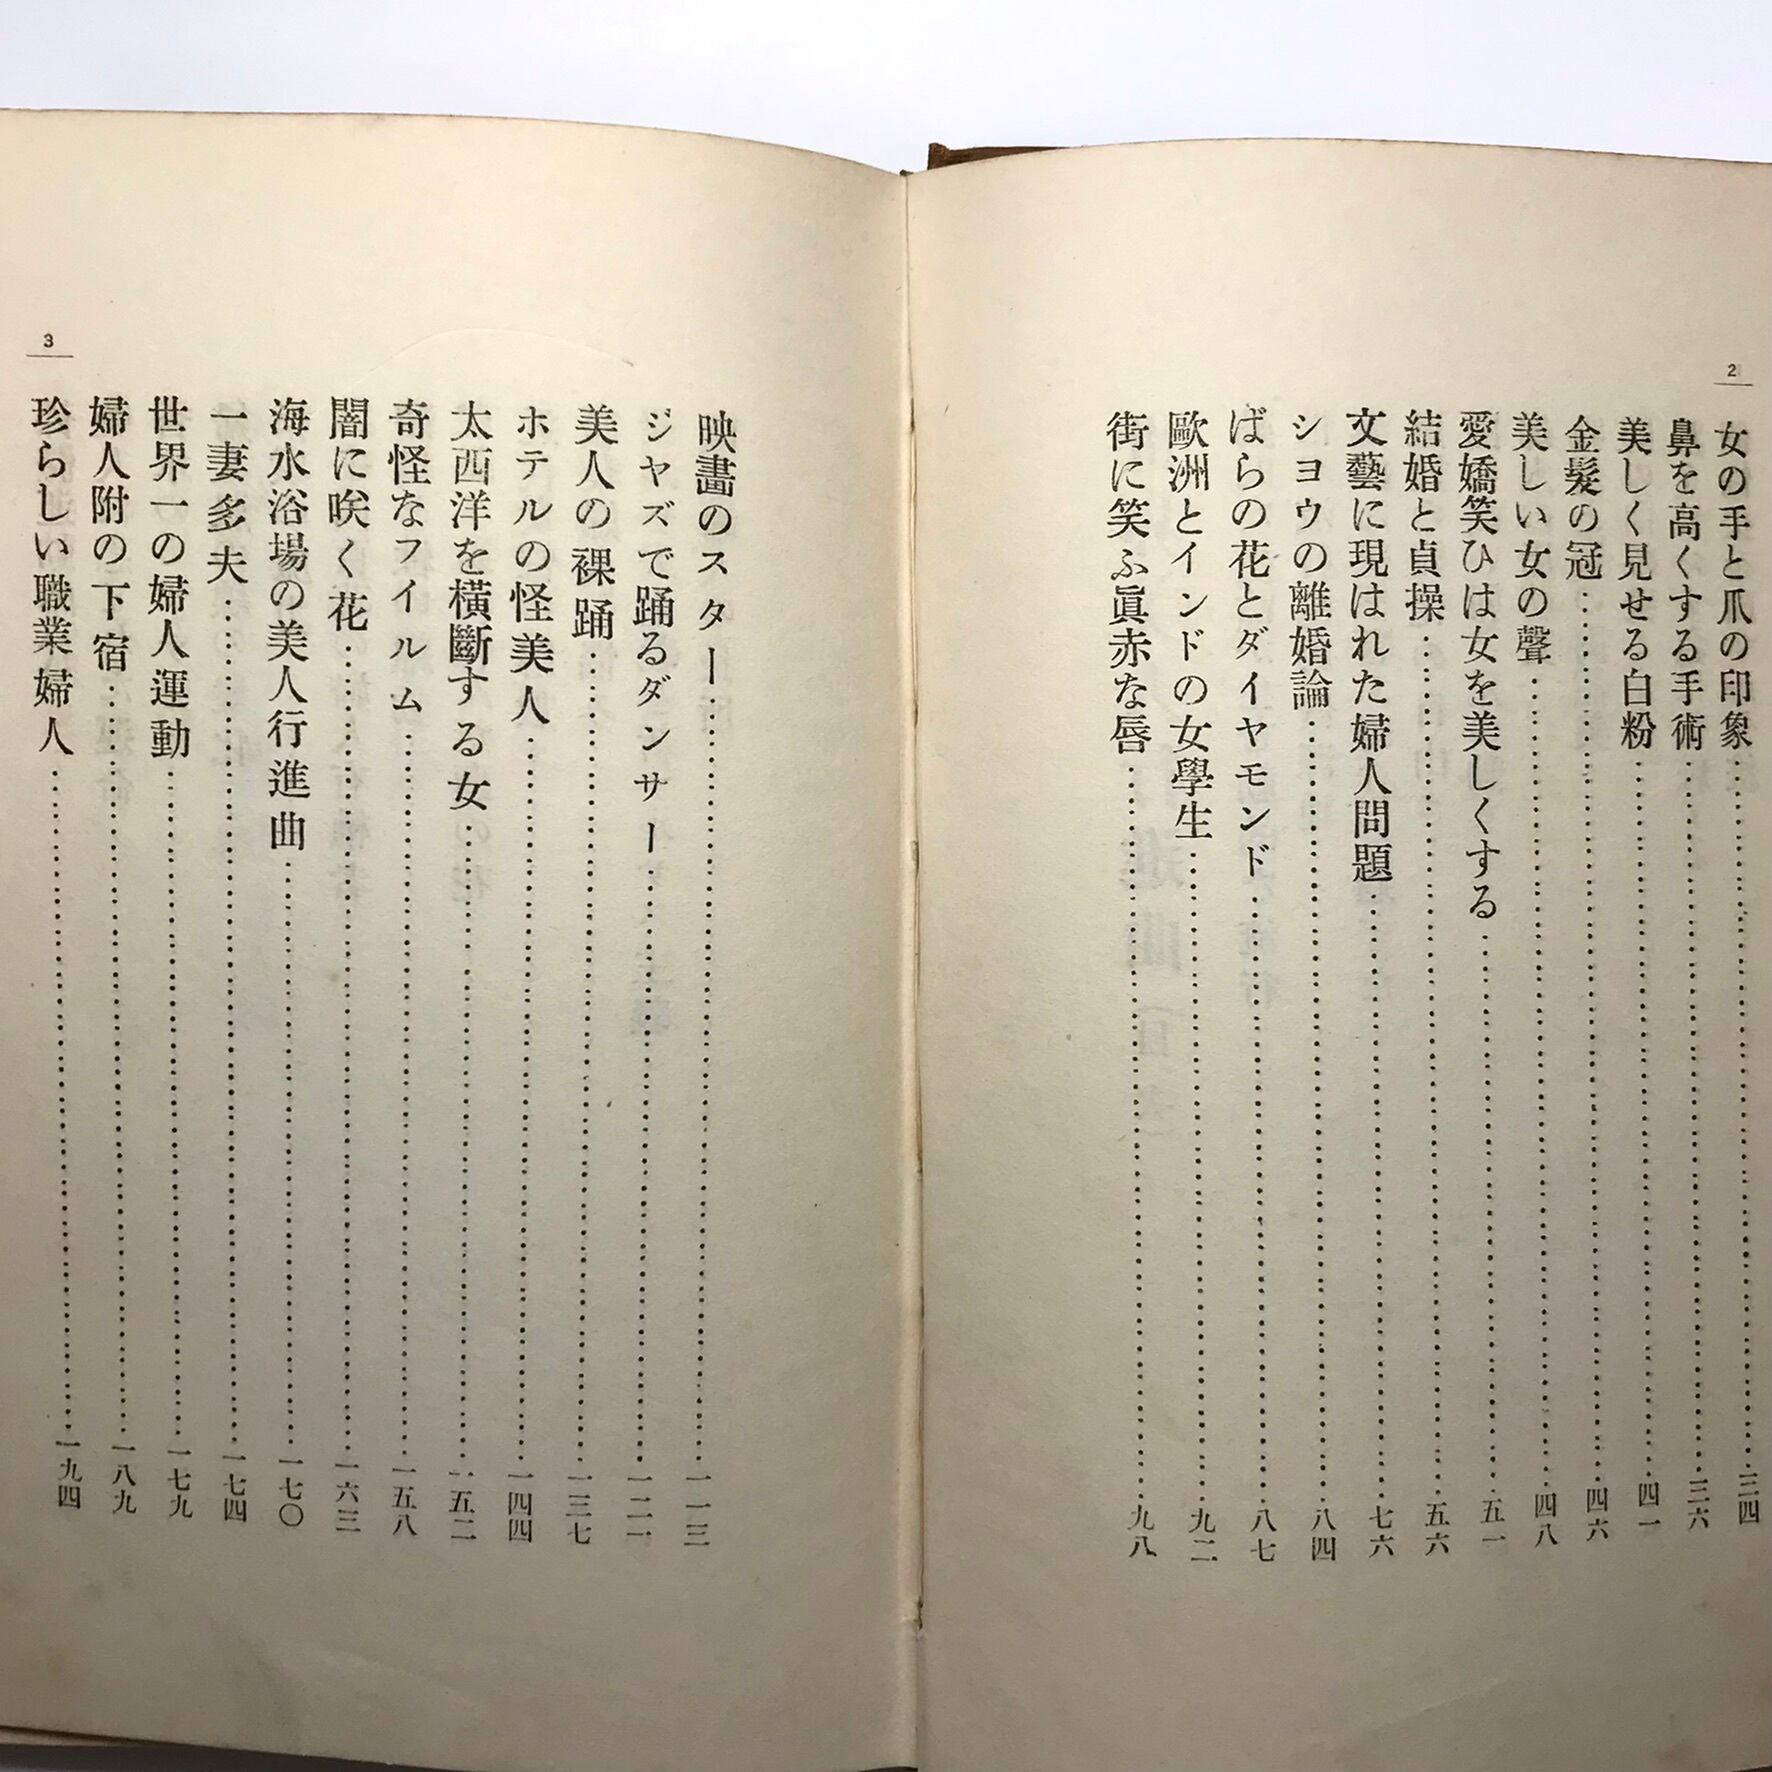 2
女の手と爪の印象……三四
鼻を高くする手術……三六
美しく見せる白粉……四一
金髮の冠……四六
美しい女の聲……四八
愛嬌笑ひは女を美しくする……五一
結婚と貞操……五六
文藝に現はれた婦人問題……七六
シヨウの離婚論……八四
ばらの花とダイヤモンド……八七
歐洲とインドの女學生……九二
街に笑ふ眞赤な唇……九八
映畫のスター……一一三
ジヤズで踊るダンサー……一二一
美人の裸踊……一三七
ホテルの怪美人……一四四
太西洋を橫斷する女……一五二
奇怪なフイルム……一五八
闇に咲く花……一六三
海水浴場の美人行進曲……一七〇
一妻多夫……一七四
世界一の婦人運動……一七九
婦人附の下宿……一八九
珍らしい職業婦人……一九四
3